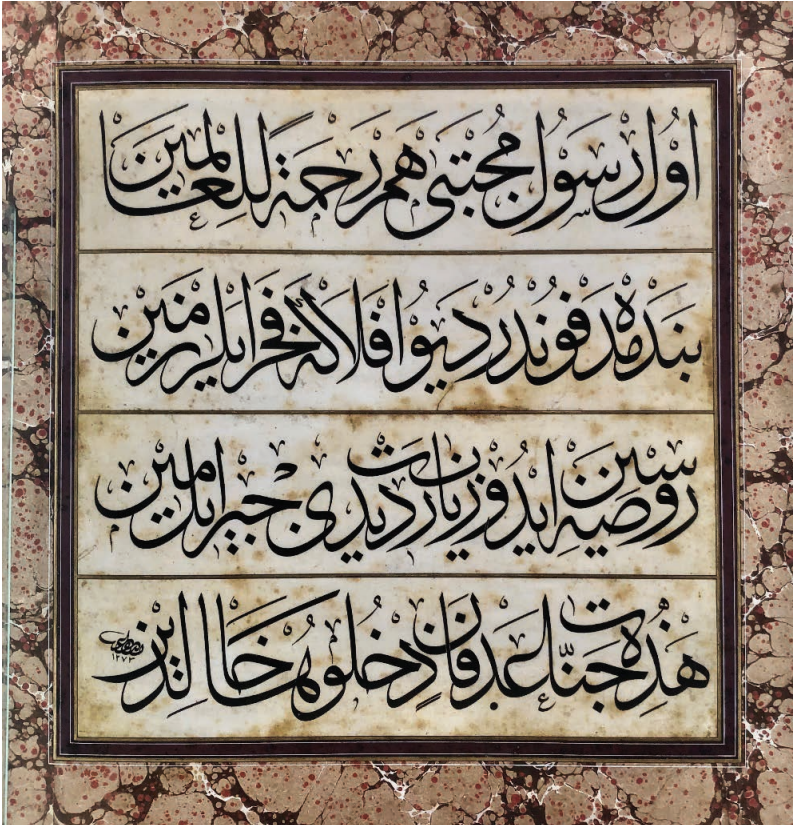 اول رسول مجتبى هم رحمة للعالمين
بنده مدفوندر ديو افلاكه فخر ايلر زمين
روضه سين ايدوب زيارت ديدى جبريل امين
هذه جنات عدن فادخلوها خالدين
١٢٧٣